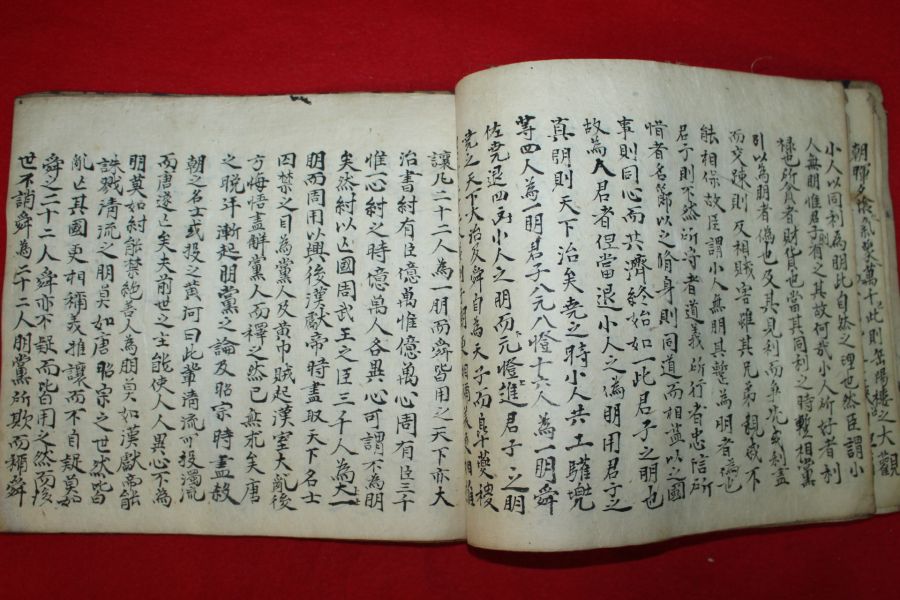 朝暉夕陰氣象萬千此則岳陽樓之大觀
小人以同利為朋此自然之理也然臣謂小
人無朋惟君子則有之其故何哉小人所好者利
祿也所貪者財貨也當其同利之時暫相黨
引以為朋者偽也及其見利而爭先或利盡
而交疎則反相賊害雖其兄弟親戚不
能相保故臣謂小人無朋其暫為朋者偽也
君子則不然所守者道義所行者忠信所
惜者名節以之脩身則同道而相益以之國
事則同心而共濟終始如一此君子之朋也
故為人君者但當退小人之偽朋用君子之
真朋則天下治矣堯之時小人共工驩兜
等四人為一朋君子八元八愷十六人為一朋舜
佐堯退四凶小人之朋而元愷進君子之朋
堯之天下大治及舜自為天子而皐夔稷
讓凡二十二人為一朋而舜皆用之天下亦大
治書紂有臣億萬惟億萬心周有臣三千
惟一心紂之時億萬人各異心可謂不為朋
矣然紂以亡國周武王之臣三千人為大一
朋而周用以興後漢獻帝時盡取天下名士
囚禁之目為黨人及黃巾賊起漢室大亂後
方悔悟盡解黨人而釋之然已無救矣唐
之晚年漸起朋黨之論及昭宗時盡殺
朝之名士或投之黃河曰此輩清流可投濁流
而唐遂亡矣夫前世之主能使人人異心不為
朋莫如紂能禁絶善人為朋莫如漢獻帝能
誅戮清流之朋莫如唐昭宗之世然皆
亂亡其國更相稱義推讓而不自疑莫如
舜之二十二人舜亦不疑而皆用之然而後
世不誚舜為二十二人朋黨所欺而稱舜